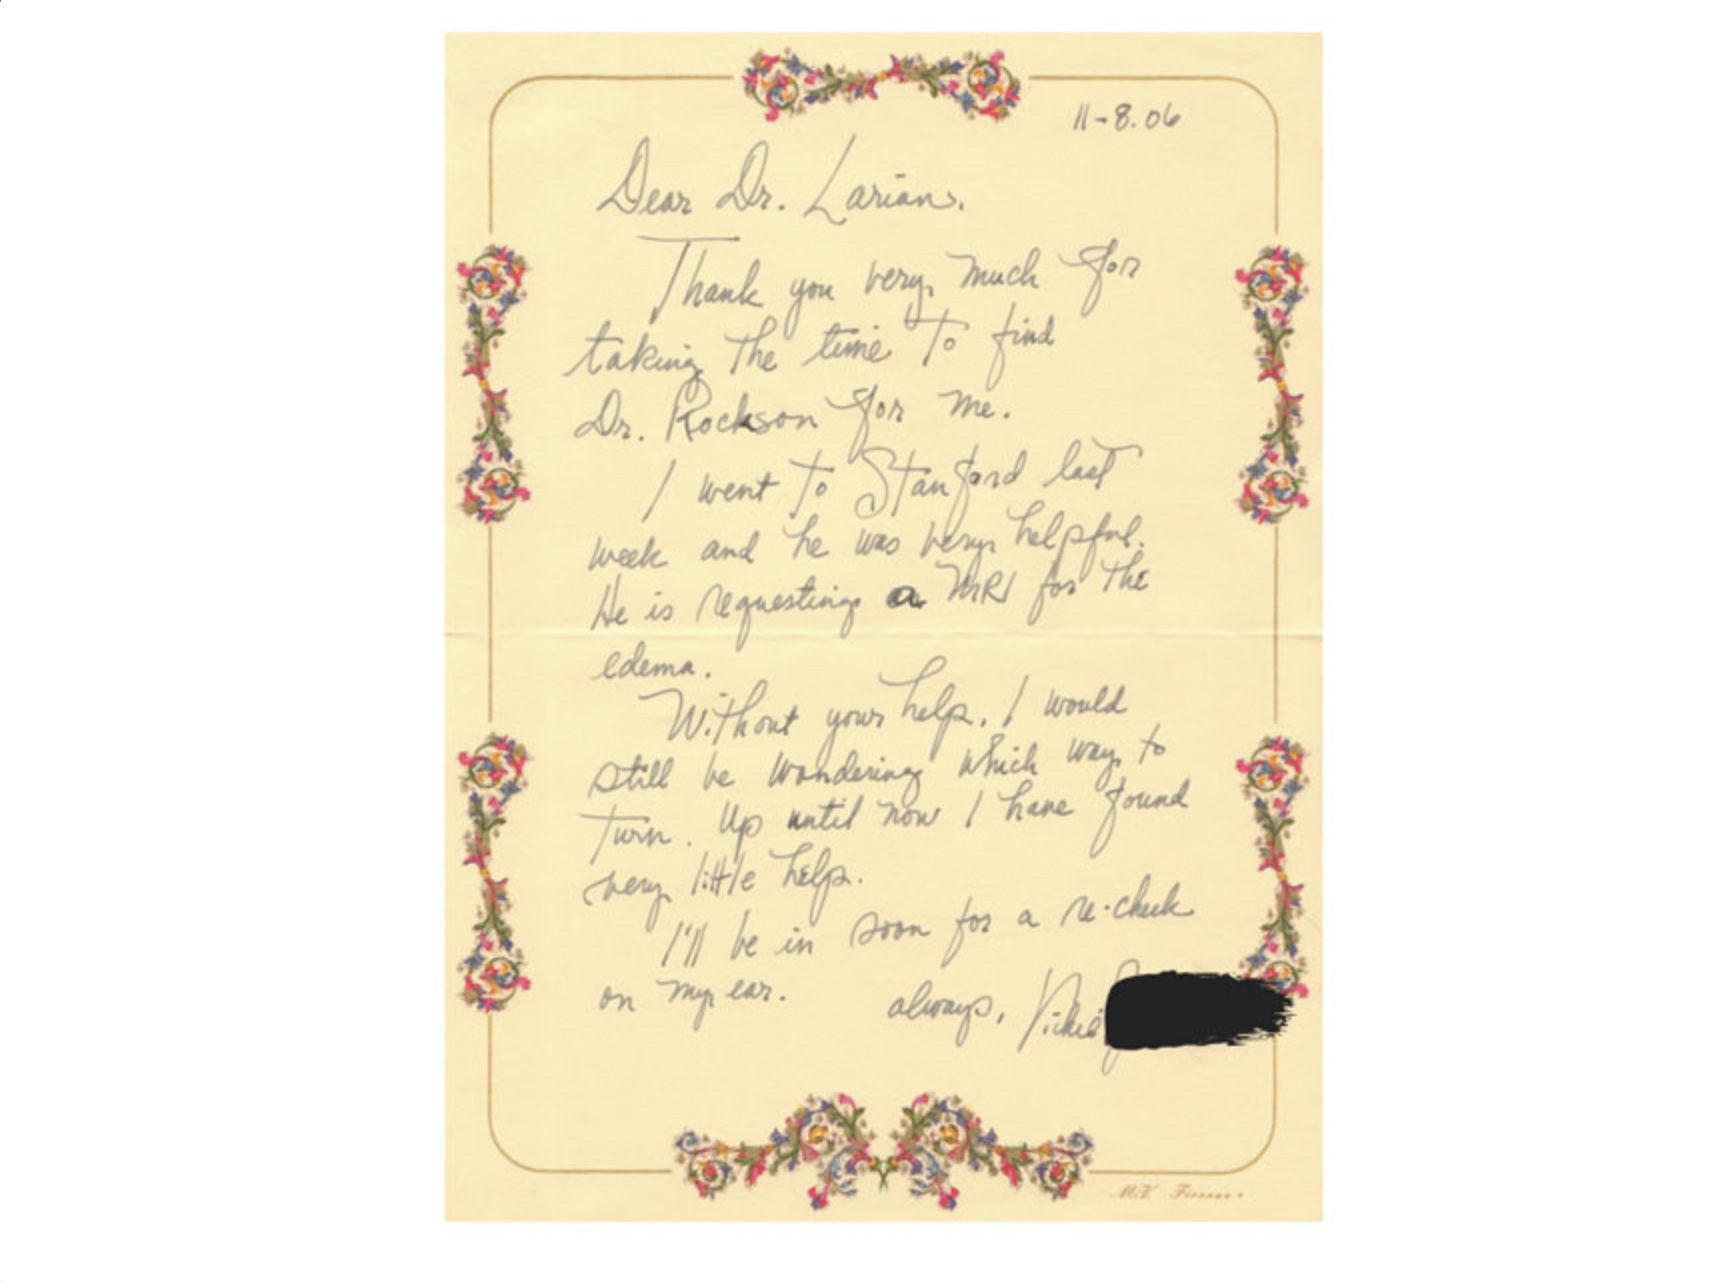 11-8.06
Dear Dr. Larian,
Thank you very much for
taking the time to find
Dr. Rockson for me.
I went to Stanford last
week and he was very helpful.
He is requesting a MRI for the
edema.
Without your help, I would
still be wondering which way to
turn. Up until now I have found
very little help.
I'll be in soon for a re-check
on my ear. always,